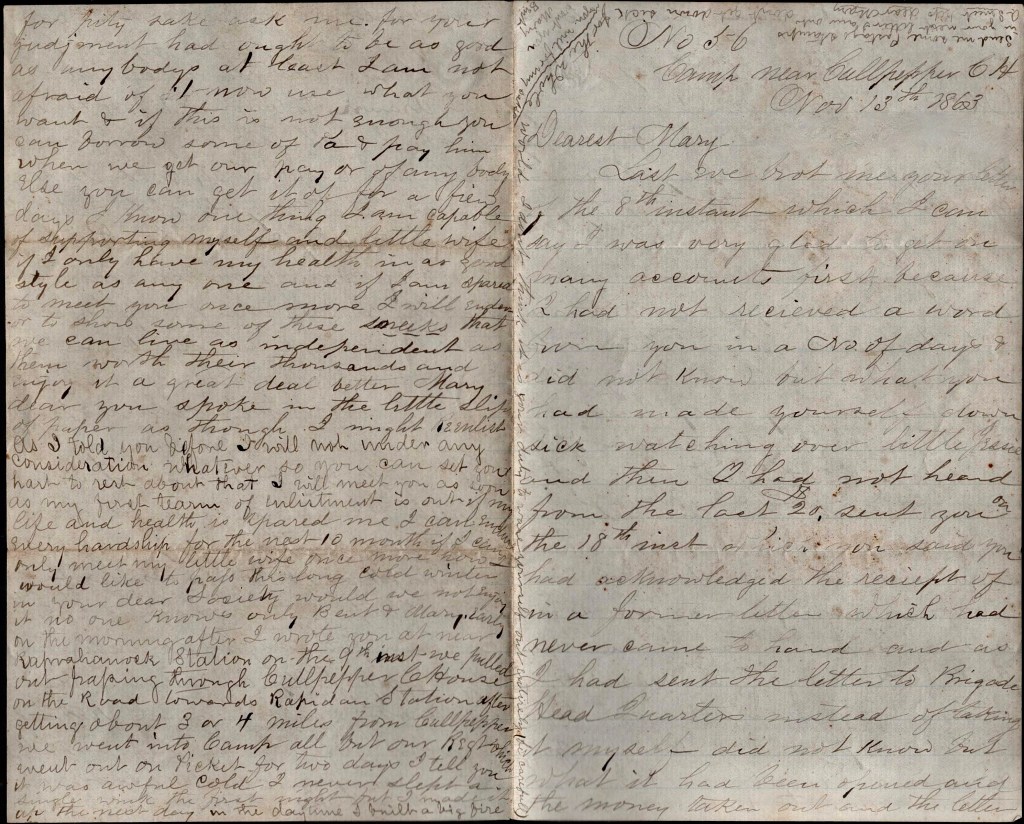 No 56
Camp near Cullpepper C H
Nov 13th 1863
Dearest Mary
Last eve brot me your letter
of the 8th instant which I can
say I was very glad to get on
many accounts first because
I had not recieved a word
from you in a No. of days &
did not know but what you
had made yourself down
sick watching over little
and then I had not heard
from the last $20. sent you on
the 18th inst which you said you
had acknowledged the reciept of
in a former letter which had
never came to hand and as
I had sent the letter to Brigade
Head Quarters instead of taking
it myself did not know but
what it had been opened and
the money taken out and the letter
for pity sake ask me. for your
judgment had ought to be as good
as anybodys at least I am not
afraid of it now use what you
want & if this is not enough you
can borrow some of Pa & pay him
when we get our pay or of any body
Else you can get it of for a few
days I know one thing I am capable
of supporting myself and little wife
if I only have my health in as good
style as any one and if I am spared
to meet you once more I will endev
or to show some of these sneeks that
we can live as independent as
them worth their thousands and
enjoy it a great deal better Mary
dear you spoke in the little slip
of paper as though I might reenlist
As I told you before I will not under any
Consideration whatever so you can set your
hart to rest about that I will meet you as soon
as my first tearm of enlistment is out if my
life and health is spared me I can endure
every hardship for the next 10 month if I can
only meet my little wife once more how I
would like to pass this long cold winter
in your dear Society would we not enjoy
it no one knows only Bent & Mary. Early
on the morning after I wrote you at near
Raprahanock Station on the 9th inst we pulled
out passing through Cullpepper C House
on the Road towards Rapidan Station after
getting about 3 or 4 miles from Cullpepper
we went into Camp all but our Regt which
went out on Picket for two days I tell you
it was awful cold I never slept a
single wink the first night but made it
up the next day in the daytime I built a big fire